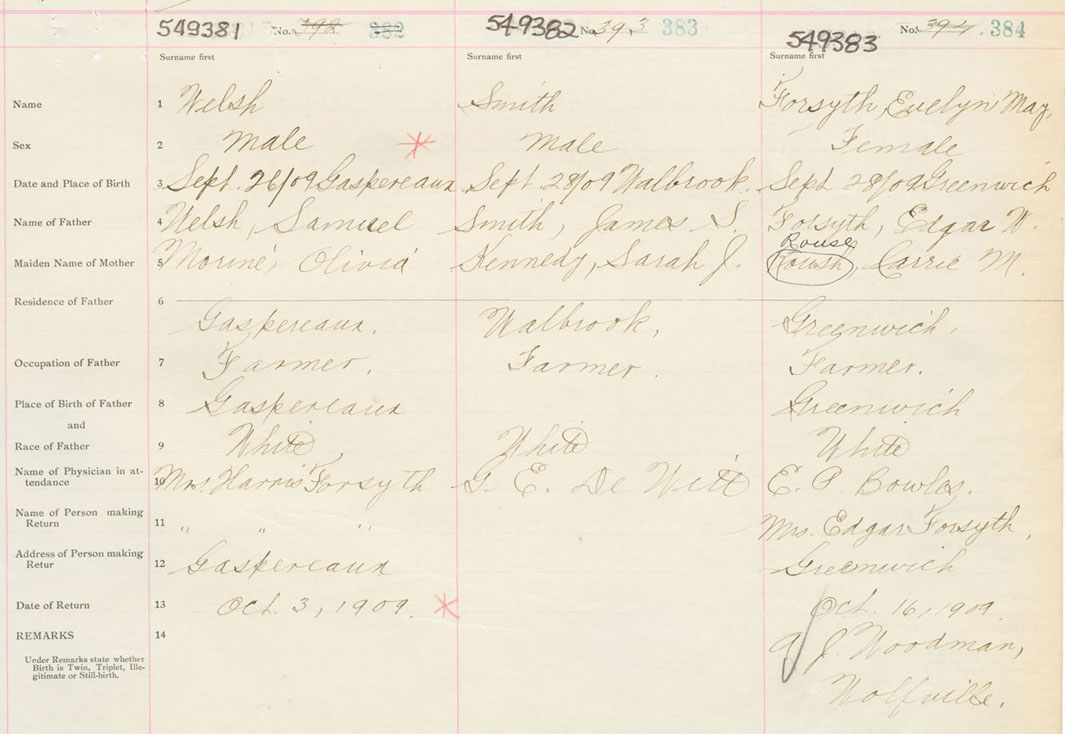 549381 No. 392 382 549382 No. 393 383 549383 No. 394. 384
Surname first Surname first Surname first
Name 1 Welsh Smith Forsyth, Evelyn May,
Sex 2 Male Male Female
Date and Place of Birth 3 Sept. 26/09 Gaspereaux Sept 28/09 Walbrook. Sept. 28/09 Greenwich
Name of Father 4 Welsh, Samuel Smith, James S. Forsyth, Edgar W.
Rouse
Maiden Name of Mother 5 Moriné, Olivia Kennedy, Sarah J. Roush, Carrie M.
Residence of Father 6
Gaspereaux. Walbrook, Greenwich.
Occupation of Father 7 Farmer. Farmer. Farmer.
Place of Birth of Father 8 Gaspereaux Greenwich
and
Race of Father 9 White White White
Name of Physician in at-
tendance 10 Mrs. Harris Forsyth G. E. De Witt E. P. Bowles.
Name of Person making
Return 11 " " " Mrs. Edgar Forsyth,
Address of Person making
Retur 12 Gaspereaux Greenwich
Date of Return 13 Oct. 3, 1909. Oct. 16, 1909
REMARKS 14
A. J. Woodman,
Under Remarks state whether
Birth is Twin, Triplet, Ille-
gitimate or Still-birth.
Wolfville.